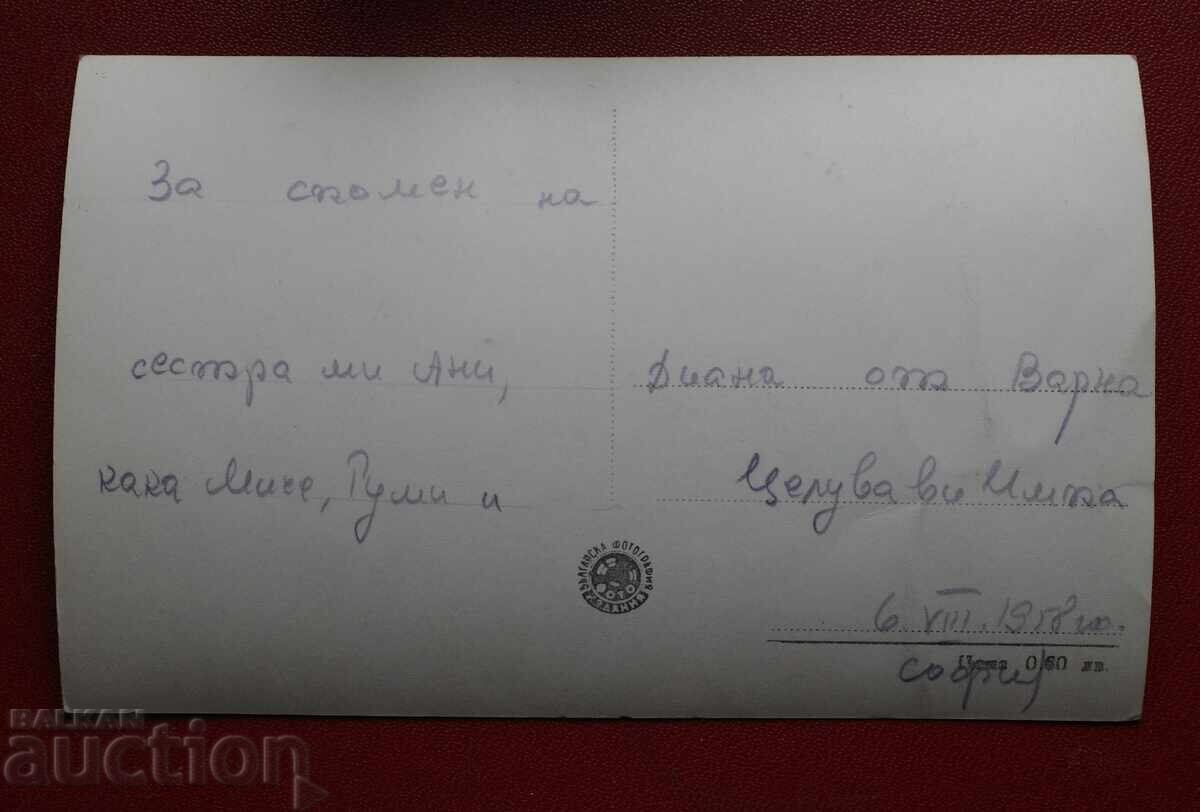 За спомен на
сестра ми Ани,
кака Миче, Руми и
Диана от Варна
Целува ви
6. VIII. 1958 го.
София
Цена 0,60 лв.
БЪЛГАРСКА ФОТОГРАФИЯ
ФОТО
ИЗДАНИЯ
BALKAN
auction